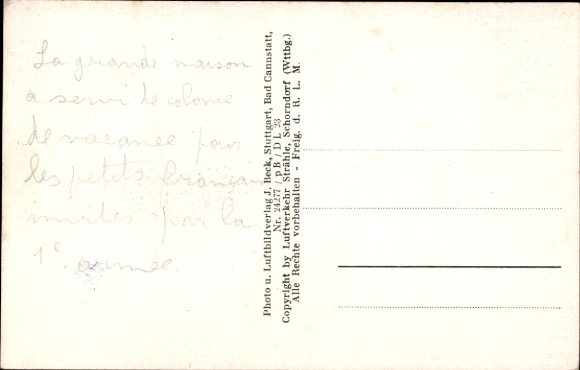 La grande maison
a servi de colonie
de vacance pour
les petits français
invités par la
1e armée.
Photo u. Luftbildverlag J. Beck, Stuttgart, Bad Cannstatt,
Nr. 24277 / p B / D L 23
Copyright by Luftverkehr Strähle, Schorndorf (Wttbg.)
Alle Rechte vorbehalten - Freig. d. R. L. M.